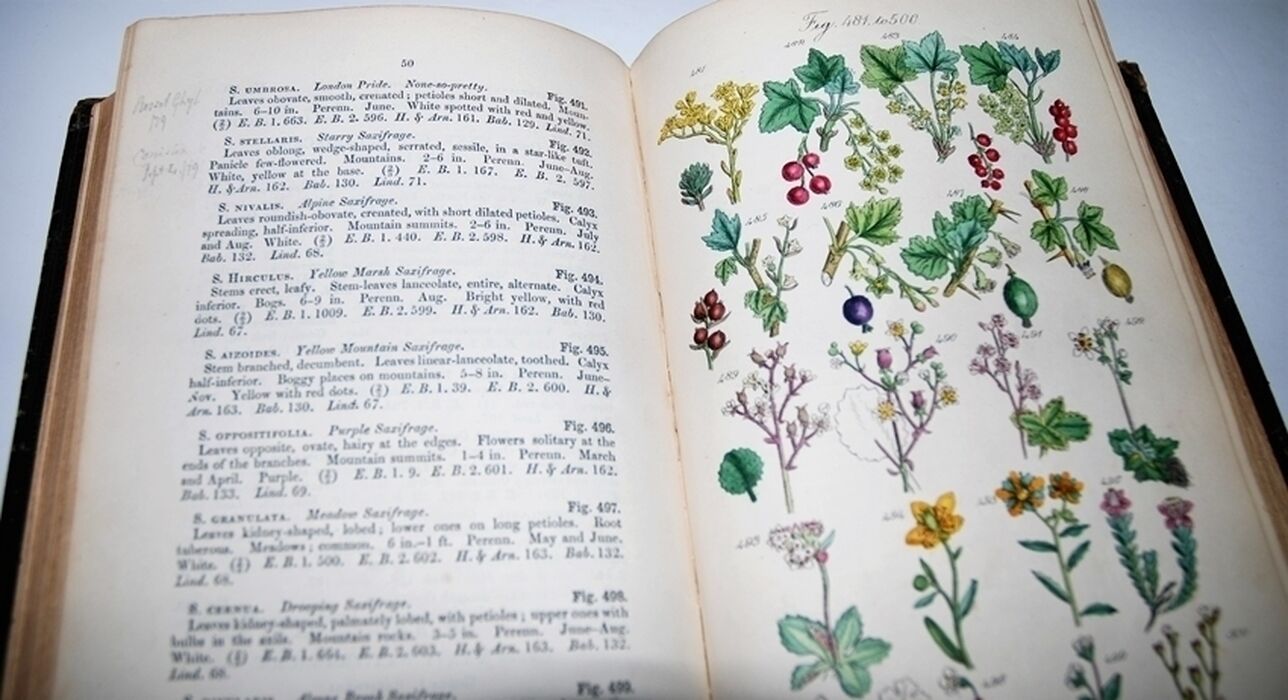 50
S. UMBROSA. London Pride. None-so-pretty. Fig. 491.
Leaves obovate, smooth, crenated; petioles short and dilated. Moun-
tains. 6–10 in. Perenn. June. White spotted with red and yellow.
(2/2) E. B. 1. 663. E. B. 2. 596. H. & Arn. 161. Bab. 129. Lind. 71.
S. STELLARIS. Starry Saxifrage. Fig. 492.
Leaves oblong, wedge-shaped, serrated, sessile, in a star-like tuft.
Panicle few-flowered. Mountains. 2–6 in. Perenn. June–Aug.
White, yellow at the base. (2/2) E. B. 1. 167. E. B. 2. 597.
H. & Arn. 162. Bab. 130. Lind. 71.
S. NIVALIS. Alpine Saxifrage. Fig. 493.
Leaves roundish-obovate, crenated, with short dilated petioles. Calyx
spreading, half-inferior. Mountain summits. 2–6 in. Perenn. July
and Aug. White. (2/2) E. B. 1. 440. E. B. 2. 598. H. & Arn. 162.
Bab. 132. Lind. 68.
S. HIRCULUS. Yellow Marsh Saxifrage. Fig. 494.
Stems erect, leafy. Stem-leaves lanceolate, entire, alternate. Calyx
inferior. Bogs. 6–9 in. Perenn. Aug. Bright yellow, with red
dots. (2/2) E. B. 1. 1009. E. B. 2. 599. H. & Arn. 162. Bab. 130.
Lind. 67.
S. AIZOIDES. Yellow Mountain Saxifrage. Fig. 495.
Stem branched, decumbent. Leaves linear-lanceolate, toothed. Calyx
half-inferior. Boggy places on mountains. 5–8 in. Perenn. June–
Nov. Yellow with red dots. (2/2) E. B. 1. 39. E. B. 2. 600. H. &
Arn. 163. Bab. 130. Lind. 67.
S. OPPOSITIFOLIA. Purple Saxifrage. Fig. 496.
Leaves opposite, ovate, hairy at the edges. Flowers solitary at the
ends of the branches. Mountain summits. 1–4 in. Perenn. March
and April. Purple. (2/2) E. B. 1. 9. E. B. 2. 601. H. & Arn. 162.
Bab. 133. Lind. 69.
S. GRANULATA. Meadow Saxifrage. Fig. 497.
Leaves kidney-shaped, lobed; lower ones on long petioles. Root
tuberous. Meadows; common. 6 in.–1 ft. Perenn. May and June.
White. (2/2) E. B. 1. 500. E. B. 2. 602. H. & Arn. 163. Bab. 132.
Lind. 68.
S. CERNUA. Drooping Saxifrage. Fig. 498.
Leaves kidney-shaped, palmately lobed, with petioles; upper ones with
bulbs in the axils. Mountain rocks. 3–5 in. Perenn. June–Aug.
White. (2/2) E. B. 1. 664. E. B. 2. 603. H. & Arn. 163. Bab. 132.
Lind. 68.
Fig. 499.
Fig. 481. to 500
481
482
483
484
485
486
487
488
489
490
491
492
493
494
495
496
498
500